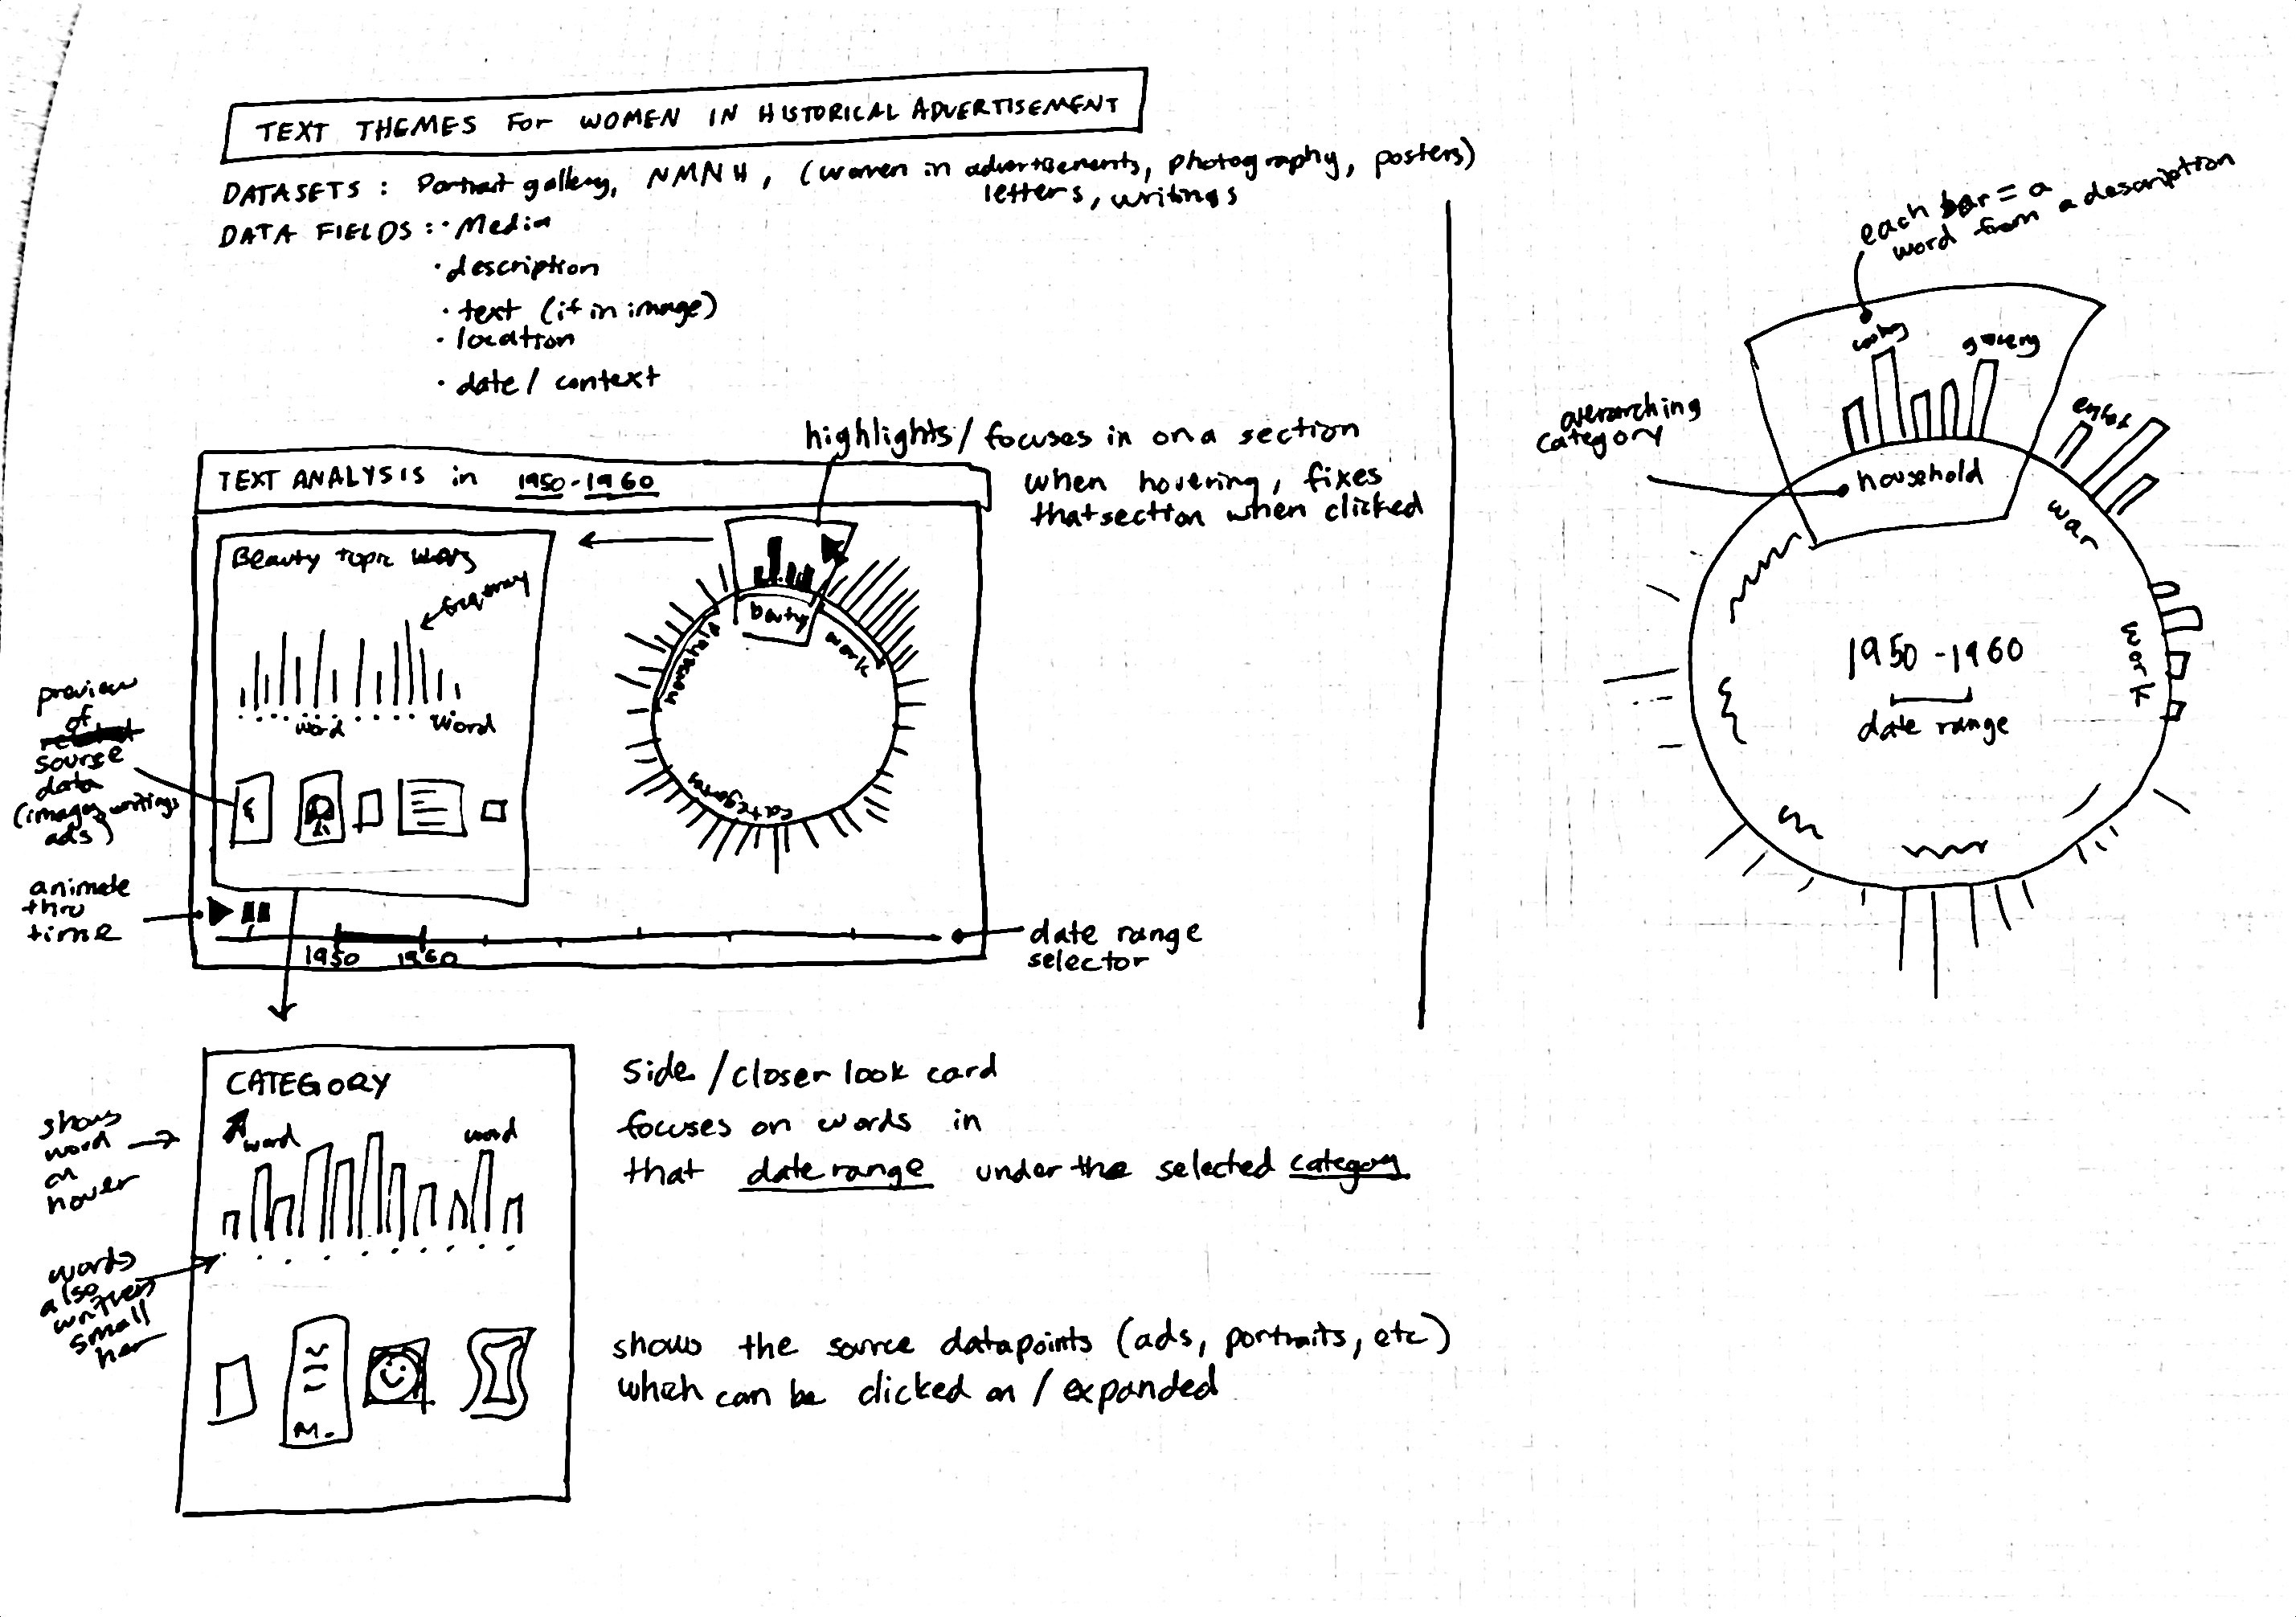 TEXT THEMES For WOMEN IN HISTORICAL ADVERTISEMENT
DATASETS : Portrait gallery, NMNH, (women in advertisements, photography, posters)
letters, writings
DATA FIELDS : · Media
· description
· text (if in image)
· location
· date / context
highlights / focuses in on a section
when hovering, fixes
that section when clicked
TEXT ANALYSIS in 1950-1960
Beauty topic
frequency
word
word
household
beauty
work
category
preview
of
source
data
(images, writings
ads)
animate
thru
time
1950
1960
date range
selector
CATEGORY
word
word
shows
word
on
hover
words
also
written
small
her
Side / closer look card
focuses on words in
that date range under the selected category
shows the source datapoints (ads, portraits, etc)
which can be clicked on / expanded
M.
each bar = a
word from a description
overarching
category
cooking
grocery
household
war
work
1950 - 1960
date range